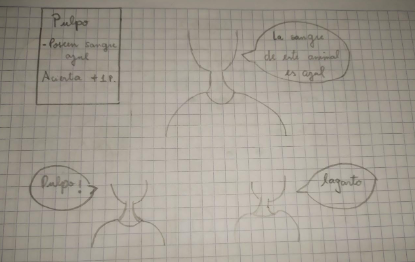 Pulpo
- Poseen sangre
azul
Acierta +1P.
La sangre
de este animal
es azul
Pulpo!
lagarto